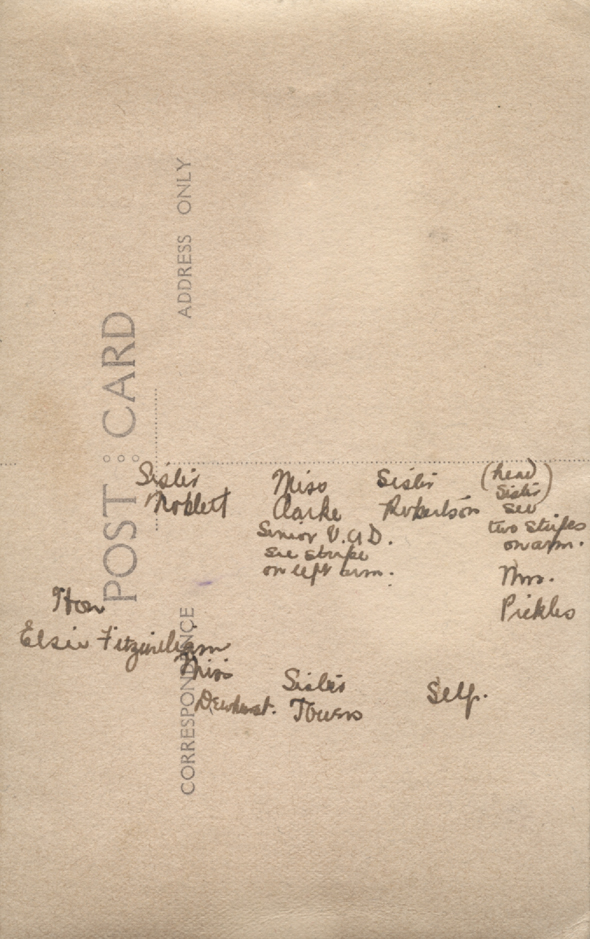 POST CARD
ADDRESS ONLY
CORRESPONDENCE
Sister
Noblett
Miss
Clarke
Senior V.A.D.
see stripe
on left arm.
Sister
Robertson
(head
Sister)
see
two stripes
on arm.
Mrs.
Pickles
Hon
Elsie Fitzwilliam
Miss
Dewhurst.
Sister
Towers
Self.